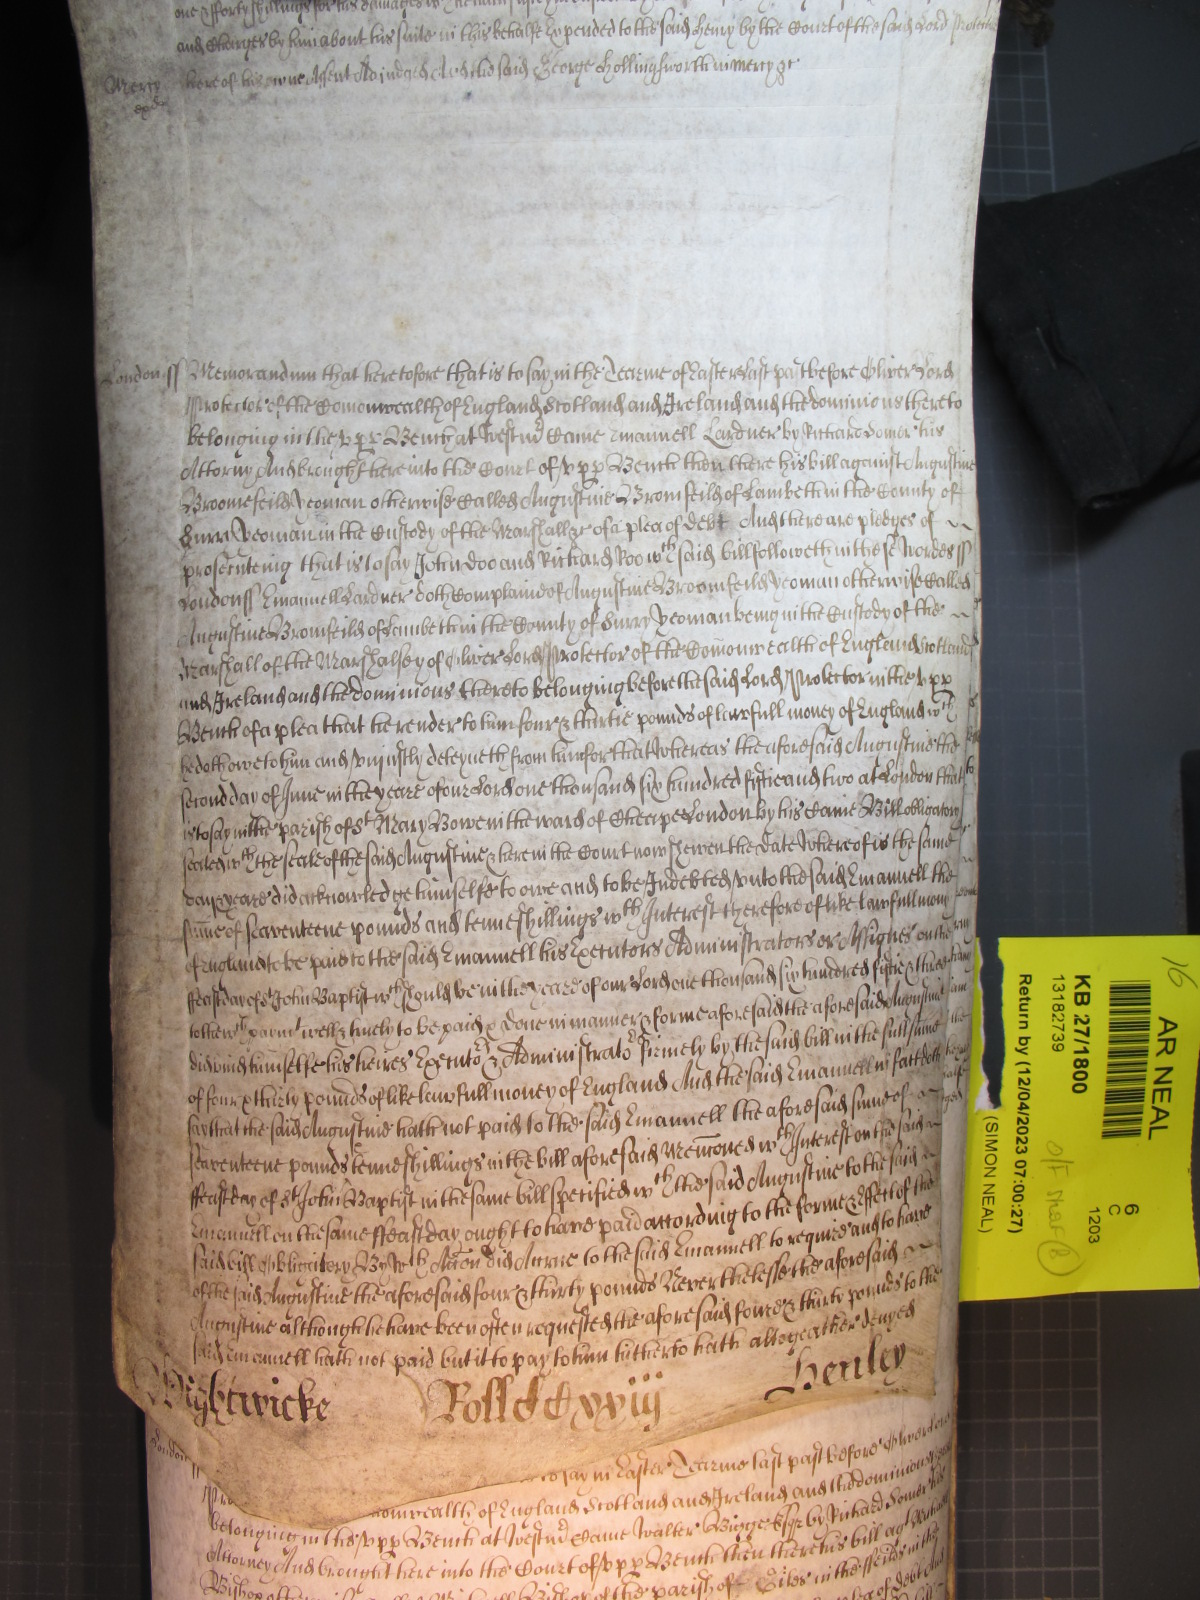 one & fforty shillings for his damages
and Charges by him about his suite in this behalfe Expended to the said Henry by the Court of the said Lord Protector
Mercy here of his owne Assent Adjudged And the said George Hollingsworth in mercy &c
London ss Memorandum that heretofore that is to say in the Tearme of Easter Last past before Oliver Lord
Protector of the Comonwealth of England Scotland and Ireland and the dominions thereto
belonging in the upp Bench at Westmr Came Emanuell Lardner by Richard Domer his
Attorny And brought here into the Court of upp Bench then there his bill against Augustine
Broomefeild yeoman otherwise Called Augustine Bromfeild of Lambeth in the County of
Surry yeoman in the Custody of the Marshall &c of a plea of debt And there are pledges of
prosecuteing that is to say John Doo and Richard Roo wch said bill followeth in these Wordes ss
London ss Emanuell Lardner doth Complaine of Augustine Broomfeild yeoman otherwise Called
Augustine Bromfeild of Lambeth in the County of Surry yeoman being in the Custody of the
Marshall of the Marshalsey of Oliver Lord Protector of the Comonwealth of England Scotland
and Ireland and the dominions thereto belonging before the said Lord Protector in the upp
Bench of a plea that he render to him four & thirtie pounds of lawfull money of England wch
he doth owe to him and unjustly deteyneth from him for that Whereas the aforesaid Augustine the
second day of June in the yeare of our Lord one thousand six hundred fiftie and two at London that
is to say in the parish of St Mary Bowe in the ward of Cheape London by his Certaine Bill obligatory
sealed wth the seale of the said Augustine & here in the Court now shewen the date Whereof is the same
day & yeare did acknowledge himselfe to owe and to be Indebted unto the said Emanuell the
sume of seaventeene pounds and tenne shillings wth Interest therefore of like lawfull money
of England to be paid to the said Emanuell his Executors Administrators or Assignes on the
ffeast day of St John Baptist wch should be in the yeare of our Lord one thousand six hundred fiftie & three
to the wch paymt well & truely to be paid & done in manner & forme aforesaid the aforesaid Augustine
did bind himselfe his heires Executors & Administrators firmely by the said bill in the full sume
of four & thirty pounds of like lawfull money of England And the said Emanuell in fact doth
say that the said Augustine hath not paid to the said Emanuell the aforesaid sume of
seaventeene pounds tenne shillings in the bill aforesaid Menconed wth Interest on the said
ffeast day of St John Baptist in the same bill specified wch the said Augustine to the said
Emanuell on the same ffeast day ought to have paid according to the forme & Effect of the
said bill Obligatory By wch Accon did Accrue to the said Emanuell to require and to have
of the said Augustine the aforesaid four & thirty pounds Neverthelesse the aforesaid
Augustine although he have been often requested the aforesaid foure & thirty pounds to the
said Emanuell hath not paid but it to pay to him hitherto hath altogeather denyed
Wightwicke Roll CCCxxiij Henley
London ss to say in Easter Tearme last past before Oliver Lord
Pro onwealth of England Scotland and Ireland and the dominions
belonging in the upp Bench at Westmr Came Walter Bigge Esqr by Richard Domer his
Attorney And brought here into the Court of upp Bench then there his bill agt
Bishop of the parish of St Giles in the ffeilds in the
plea of debt And
AR NEAL
16
6
C
1203
KB 27/1800
13182739
Return by (12/04/2023 07:00:27)
(SIMON NEAL)